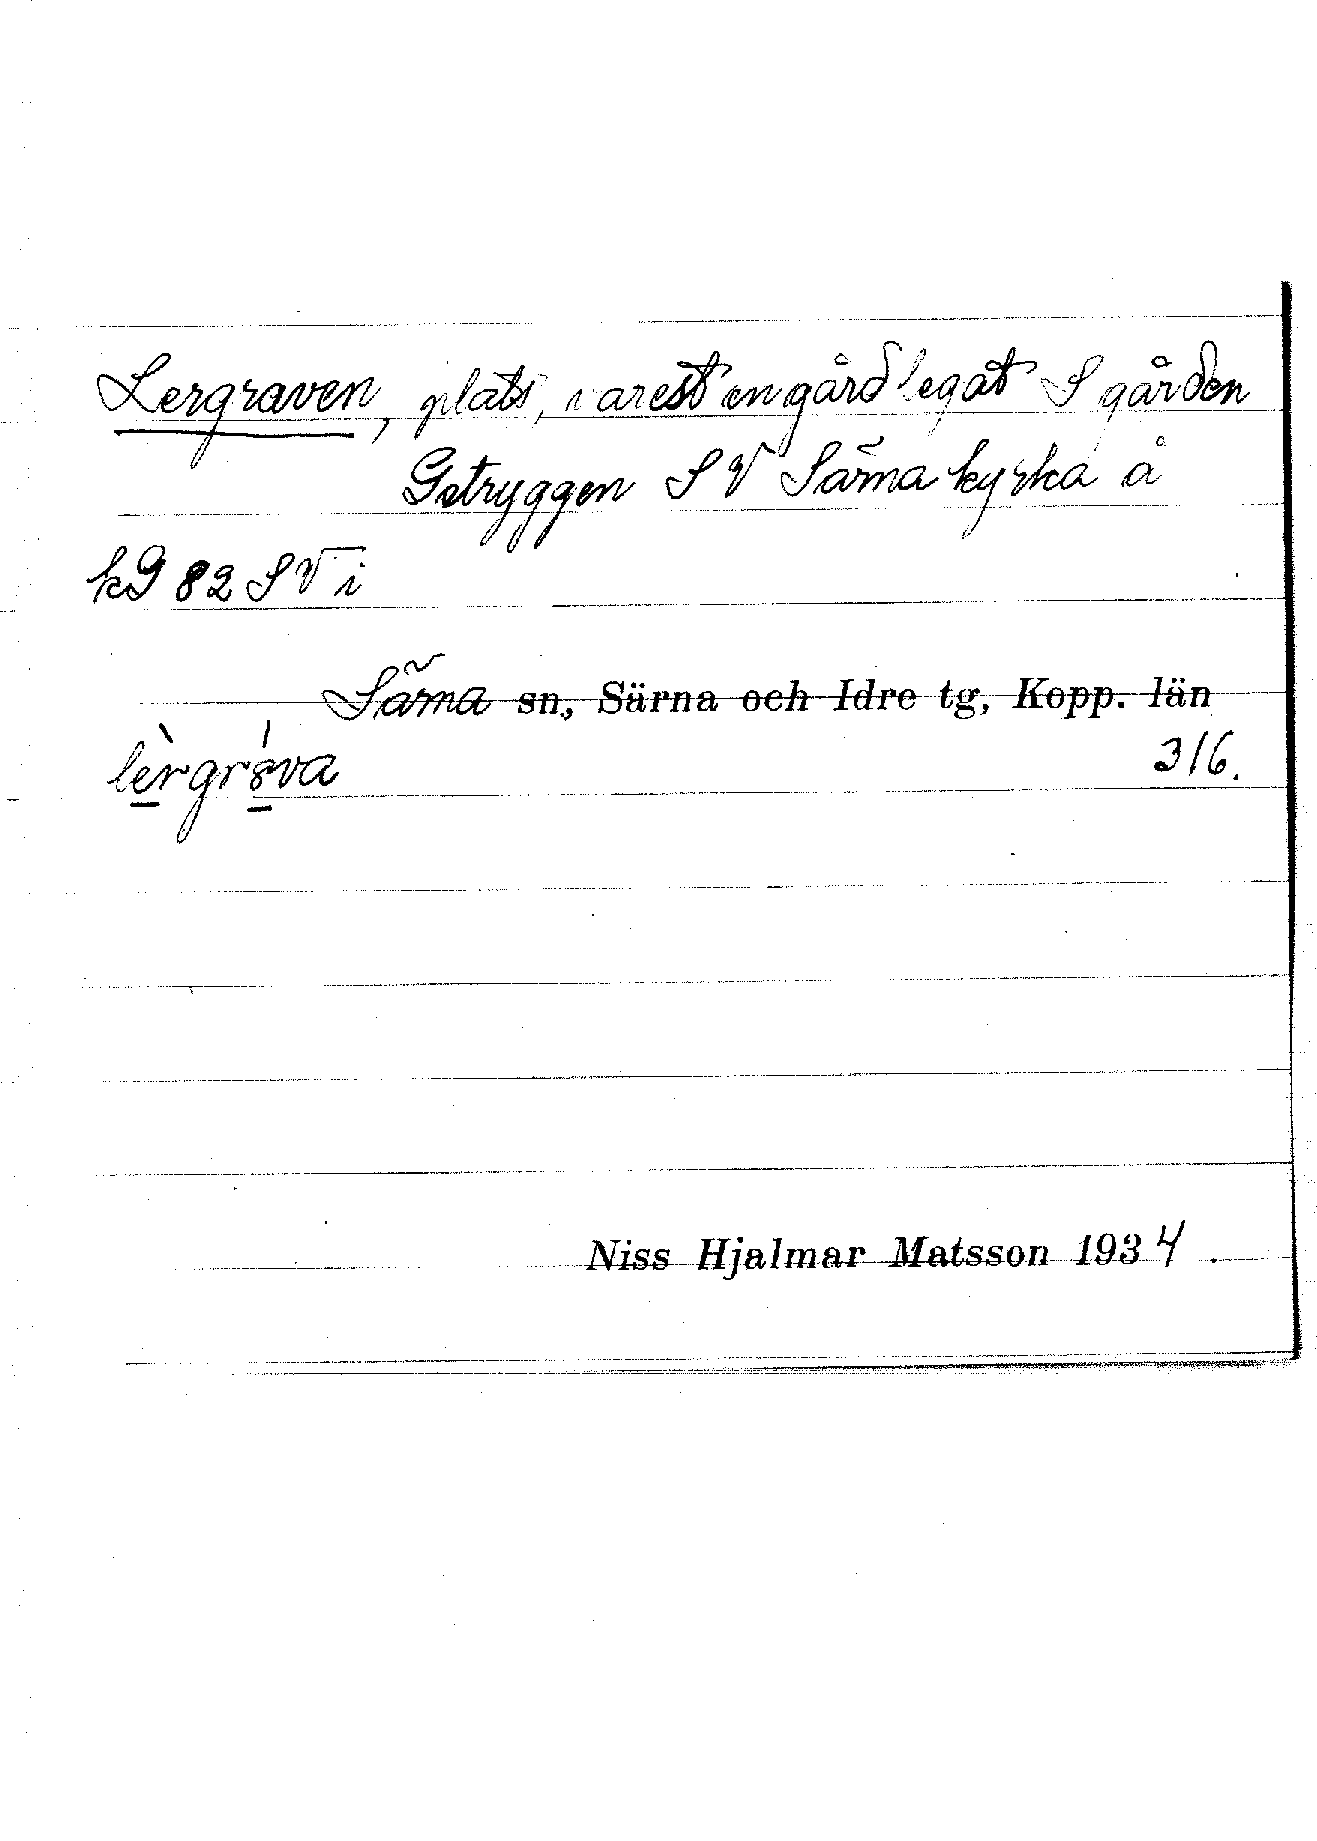 Lergraven, plats, varest en gård legat S gården
Getryggen SV Särna kyrka å
kg 82 SV i
Särna sn, Särna och Idre tg, Kopp. län
lèrgrǻva
316.
Niss Hjalmar Matsson 1934.